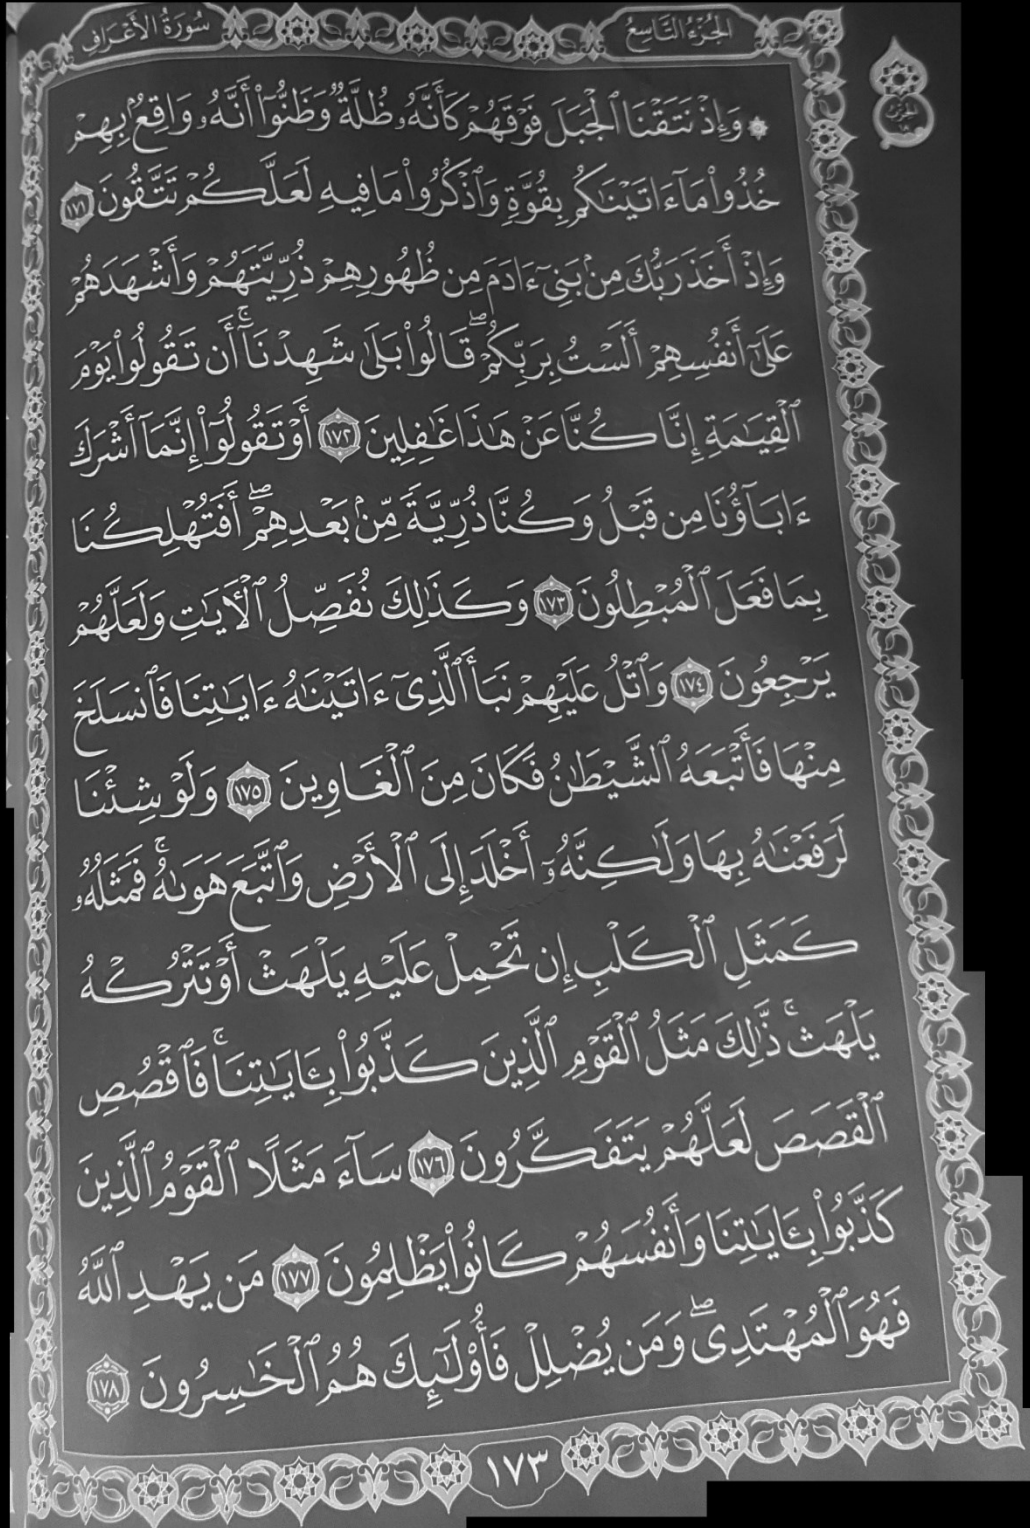 الجُزْءُ التَّاسِعُ
سُورَةُ الأَعْرَافِ
۞ وَإِذْ نَتَقْنَا ٱلْجَبَلَ فَوْقَهُمْ كَأَنَّهُۥ ظُلَّةٌ وَظَنُّوٓا۟ أَنَّهُۥ وَاقِعٌۢ بِهِمْ
خُذُوا۟ مَآ ءَاتَيْنَٰكُم بِقُوَّةٍ وَٱذْكُرُوا۟ مَا فِيهِ لَعَلَّكُمْ تَتَّقُونَ ١٧١
وَإِذْ أَخَذَ رَبُّكَ مِنۢ بَنِىٓ ءَادَمَ مِن ظُهُورِهِمْ ذُرِّيَّتَهُمْ وَأَشْهَدَهُمْ
عَلَىٰٓ أَنفُسِهِمْ أَلَسْتُ بِرَبِّكُمْ ۖ قَالُوا۟ بَلَىٰ شَهِدْنَآ ۚ أَن تَقُولُوا۟ يَوْمَ
ٱلْقِيَٰمَةِ إِنَّا كُنَّا عَنْ هَٰذَا غَٰفِلِينَ ١٧٢ أَوْ تَقُولُوٓا۟ إِنَّمَآ أَشْرَكَ
ءَابَآؤُنَا مِن قَبْلُ وَكُنَّا ذُرِّيَّةً مِّنۢ بَعْدِهِمْ ۖ أَفَتُهْلِكُنَا
بِمَا فَعَلَ ٱلْمُبْطِلُونَ ١٧٣ وَكَذَٰلِكَ نُفَصِّلُ ٱلْـَٔايَٰتِ وَلَعَلَّهُمْ
يَرْجِعُونَ ١٧٤ وَٱتْلُ عَلَيْهِمْ نَبَأَ ٱلَّذِىٓ ءَاتَيْنَٰهُ ءَايَٰتِنَا فَٱنسَلَخَ
مِنْهَا فَأَتْبَعَهُ ٱلشَّيْطَٰنُ فَكَانَ مِنَ ٱلْغَاوِينَ ١٧٥ وَلَوْ شِئْنَا
لَرَفَعْنَٰهُ بِهَا وَلَٰكِنَّهُۥٓ أَخْلَدَ إِلَى ٱلْأَرْضِ وَٱتَّبَعَ هَوَىٰهُ ۚ فَمَثَلُهُۥ
كَمَثَلِ ٱلْكَلْبِ إِن تَحْمِلْ عَلَيْهِ يَلْهَثْ أَوْ تَتْرُكْهُ
يَلْهَث ۚ ذَّٰلِكَ مَثَلُ ٱلْقَوْمِ ٱلَّذِينَ كَذَّبُوا۟ بِـَٔايَٰتِنَا ۚ فَٱقْصُصِ
ٱلْقَصَصَ لَعَلَّهُمْ يَتَفَكَّرُونَ ١٧٦ سَآءَ مَثَلًا ٱلْقَوْمُ ٱلَّذِينَ
كَذَّبُوا۟ بِـَٔايَٰتِنَا وَأَنفُسَهُمْ كَانُوا۟ يَظْلِمُونَ ١٧٧ مَن يَهْدِ ٱللَّهُ
فَهُوَ ٱلْمُهْتَدِى ۖ وَمَن يُضْلِلْ فَأُو۟لَٰٓئِكَ هُمُ ٱلْخَٰسِرُونَ ١٧٨
١٧٣